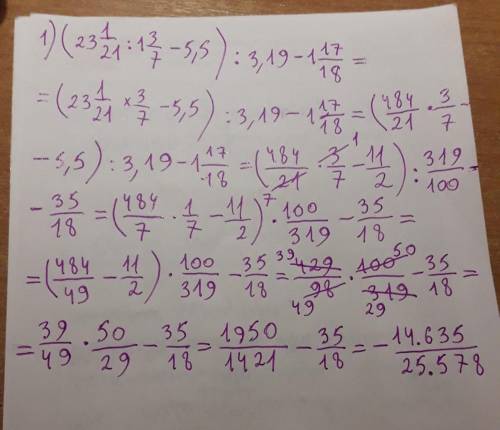 1) (23 1/21 : 1 3/7 − 5,5) : 3,19 − 1 17/18 =
= (23 1/21 × 3/7 − 5,5) : 3,19 − 1 17/18 = (484/21 · 3/7 −
− 5,5) : 3,19 − 1 17/18 = (484/21 · 3/7 − 11/2) : 319/100 −
− 35/18 = (484/7 · 1/7 − 11/2) · 100/319 − 35/18 =
= (484/49 − 11/2) · 100/319 − 35/18 = 429/98 · 100/319 − 35/18 =
= 39/49 · 50/29 − 35/18 = 1950/1421 − 35/18 = − 14.635/25.578